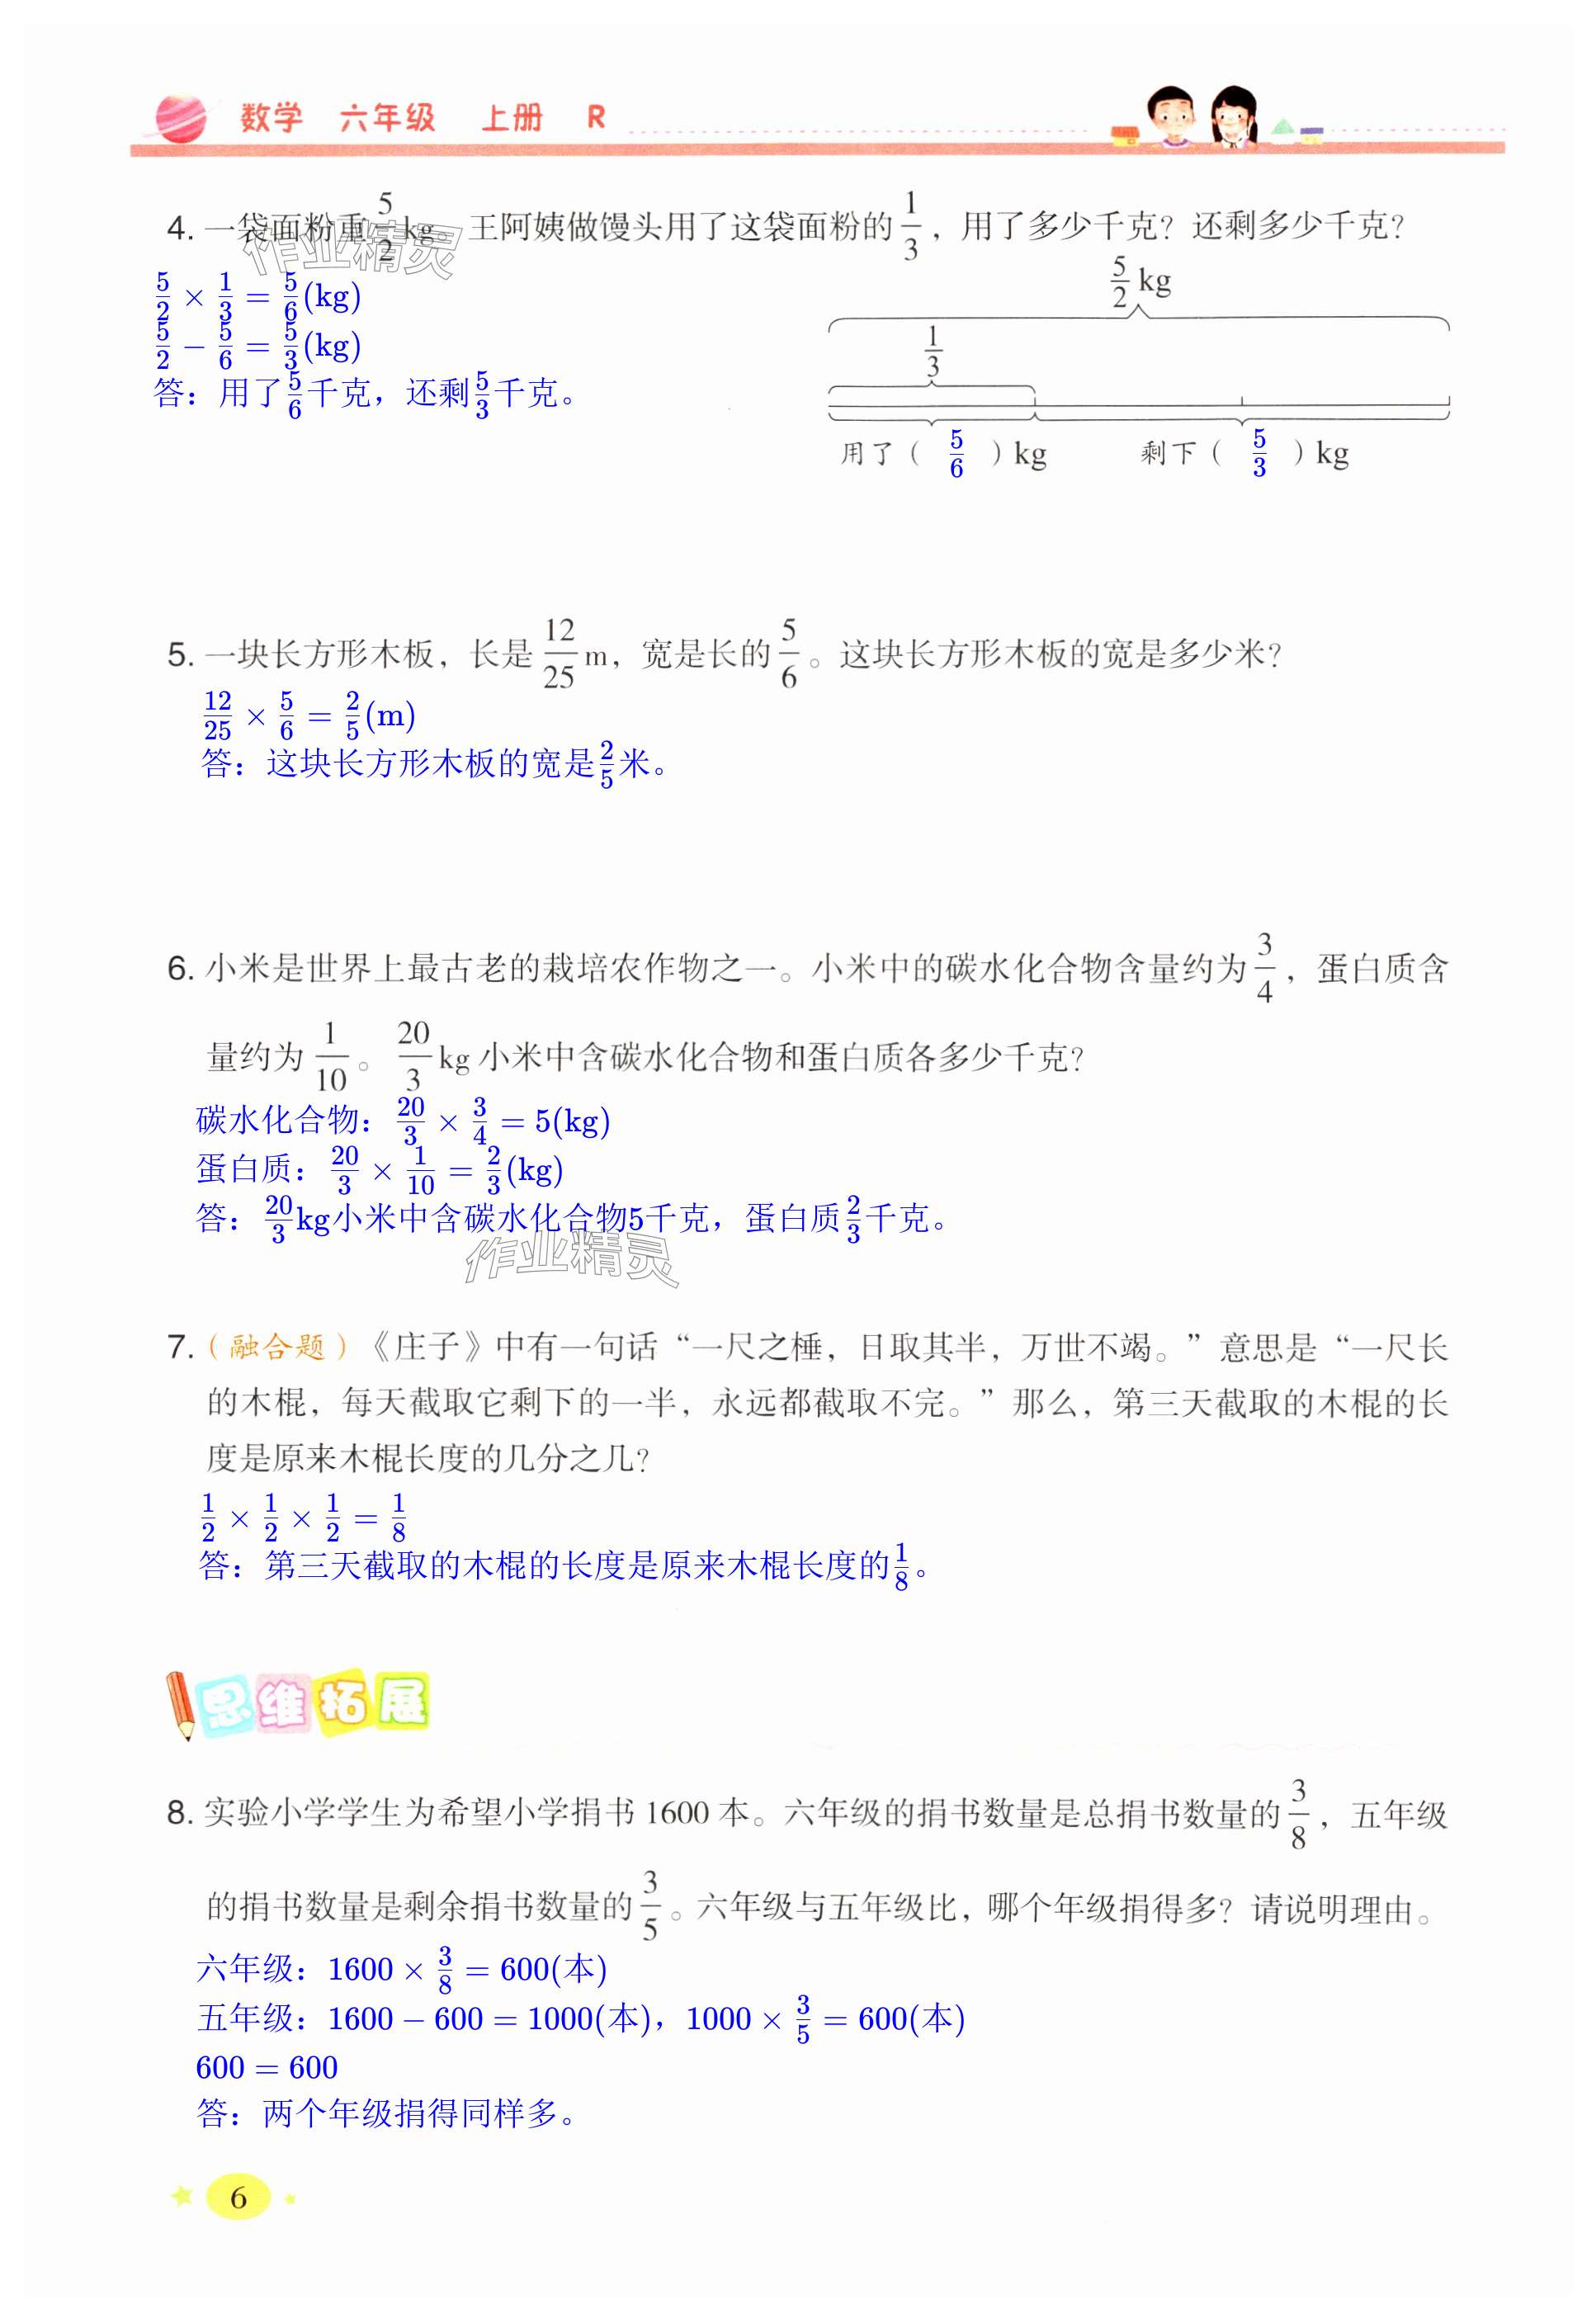 数学 六年级 上册 R
4. 一袋面粉重5/2kg。王阿姨做馒头用了这袋面粉的1/3，用了多少千克？还剩多少千克？
5/2 × 1/3 = 5/6(kg)
5/2 − 5/6 = 5/3(kg)
答：用了5/6千克，还剩5/3千克。
5/2 kg
1/3
用了（ 5/6 ）kg 剩下（ 5/3 ）kg
作业精灵
5. 一块长方形木板，长是12/25m，宽是长的5/6。这块长方形木板的宽是多少米？
12/25 × 5/6 = 2/5(m)
答：这块长方形木板的宽是2/5米。
6. 小米是世界上最古老的栽培农作物之一。小米中的碳水化合物含量约为3/4，蛋白质含
量约为1/10。20/3kg小米中含碳水化合物和蛋白质各多少千克？
碳水化合物：20/3 × 3/4 = 5(kg)
蛋白质：20/3 × 1/10 = 2/3(kg)
答：20/3kg小米中含碳水化合物5千克，蛋白质2/3千克。
作业精灵
7.（融合题）《庄子》中有一句话“一尺之棰，日取其半，万世不竭。”意思是“一尺长
的木棍，每天截取它剩下的一半，永远都截取不完。”那么，第三天截取的木棍的长
度是原来木棍长度的几分之几？
1/2 × 1/2 × 1/2 = 1/8
答：第三天截取的木棍的长度是原来木棍长度的1/8。
思维拓展
8. 实验小学学生为希望小学捐书1600本。六年级的捐书数量是总捐书数量的3/8，五年级
的捐书数量是剩余捐书数量的3/5。六年级与五年级比，哪个年级捐得多？请说明理由。
六年级：1600 × 3/8 = 600(本)
五年级：1600 − 600 = 1000(本)，1000 × 3/5 = 600(本)
600 = 600
答：两个年级捐得同样多。
6